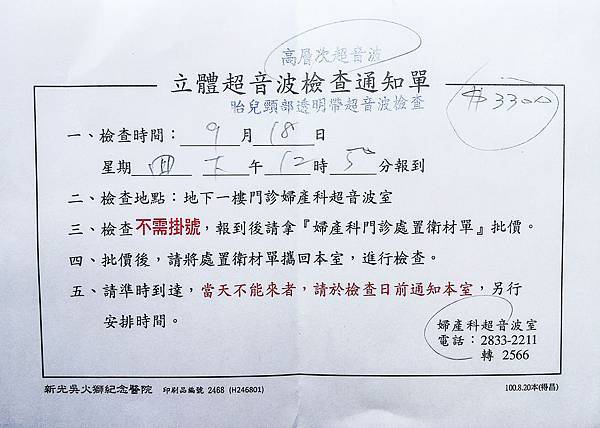 高層次超音波
立體超音波檢查通知單
胎兒頸部透明帶超音波檢查
$3300
一、檢查時間：9月18日
星期四下午12時50分報到
二、檢查地點：地下一樓門診婦產科超音波室
三、檢查不需掛號，報到後請拿『婦產科門診處置衛材單』批價。
四、批價後，請將處置衛材單攜回本室，進行檢查。
五、請準時到達，當天不能來者，請於檢查日前通知本室，另行
安排時間。
婦產科超音波室
電話：2833-2211
轉 2566
新光吳火獅紀念醫院 印刷品編號 2468 (H246801)
100.8.20本(得昌)